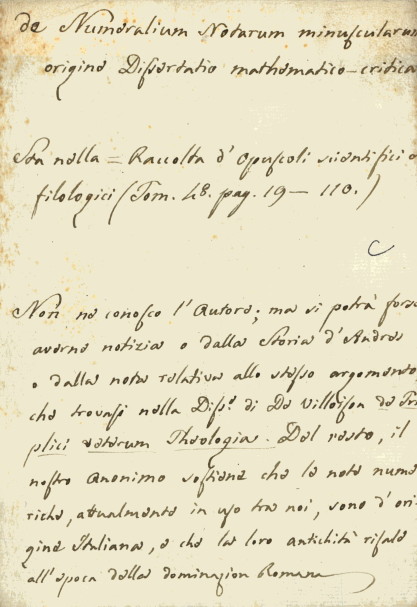 de Numeralium Notarum minuscularum
origine Dissertatio mathematico-critica
Sta nella = Raccolta d'opuscoli scientifici e
filologici (Tom. 48. pag. 19 — 110.)
Non ne conosco l'Autore; ma si potrà forse
averne notizia o dalla Storia d'Andres
o dalla nota relativa allo stesso argomento
che trovasi nella Diss.e di De Villoison de Tri
plici veterum Theologia. Del resto, il
nostro anonimo sostiene che le note nume
riche, attualmente in uso tra noi, sono d'ori
gine Italiana, e che la loro antichità risale
all'epoca della dominazion Romana